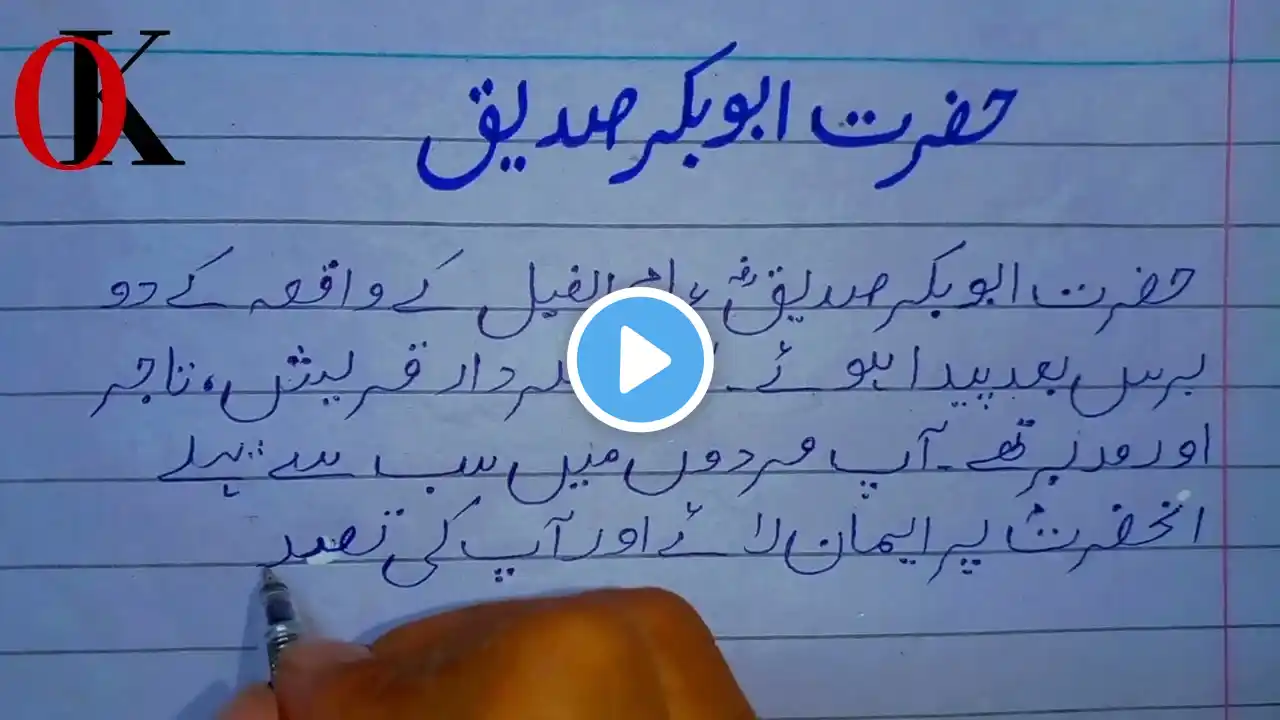 OK
حضرت ابوبکر صدیق
حضرت ابوبکر صدیقؓ عام الفیل کے واقعہ کے دو
برس بعد پیدا ہوئے۔ سردار قریش، تاجر
اور مدبر تھے۔ آپ مردوں میں سب سے پہلے
آنحضرتؐ پر ایمان لائے اور آپ کی تصد